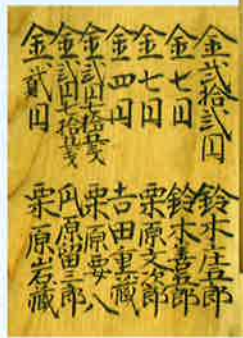 金弐拾弐円 鈴木庄五郎
金七円 鈴木喜郎
金七円 栗原文次郎
金四円 吉田藏
金弐円七拾銭 栗原要八
金弐円七拾銭 原留三郎
金貳円 栗原岩藏